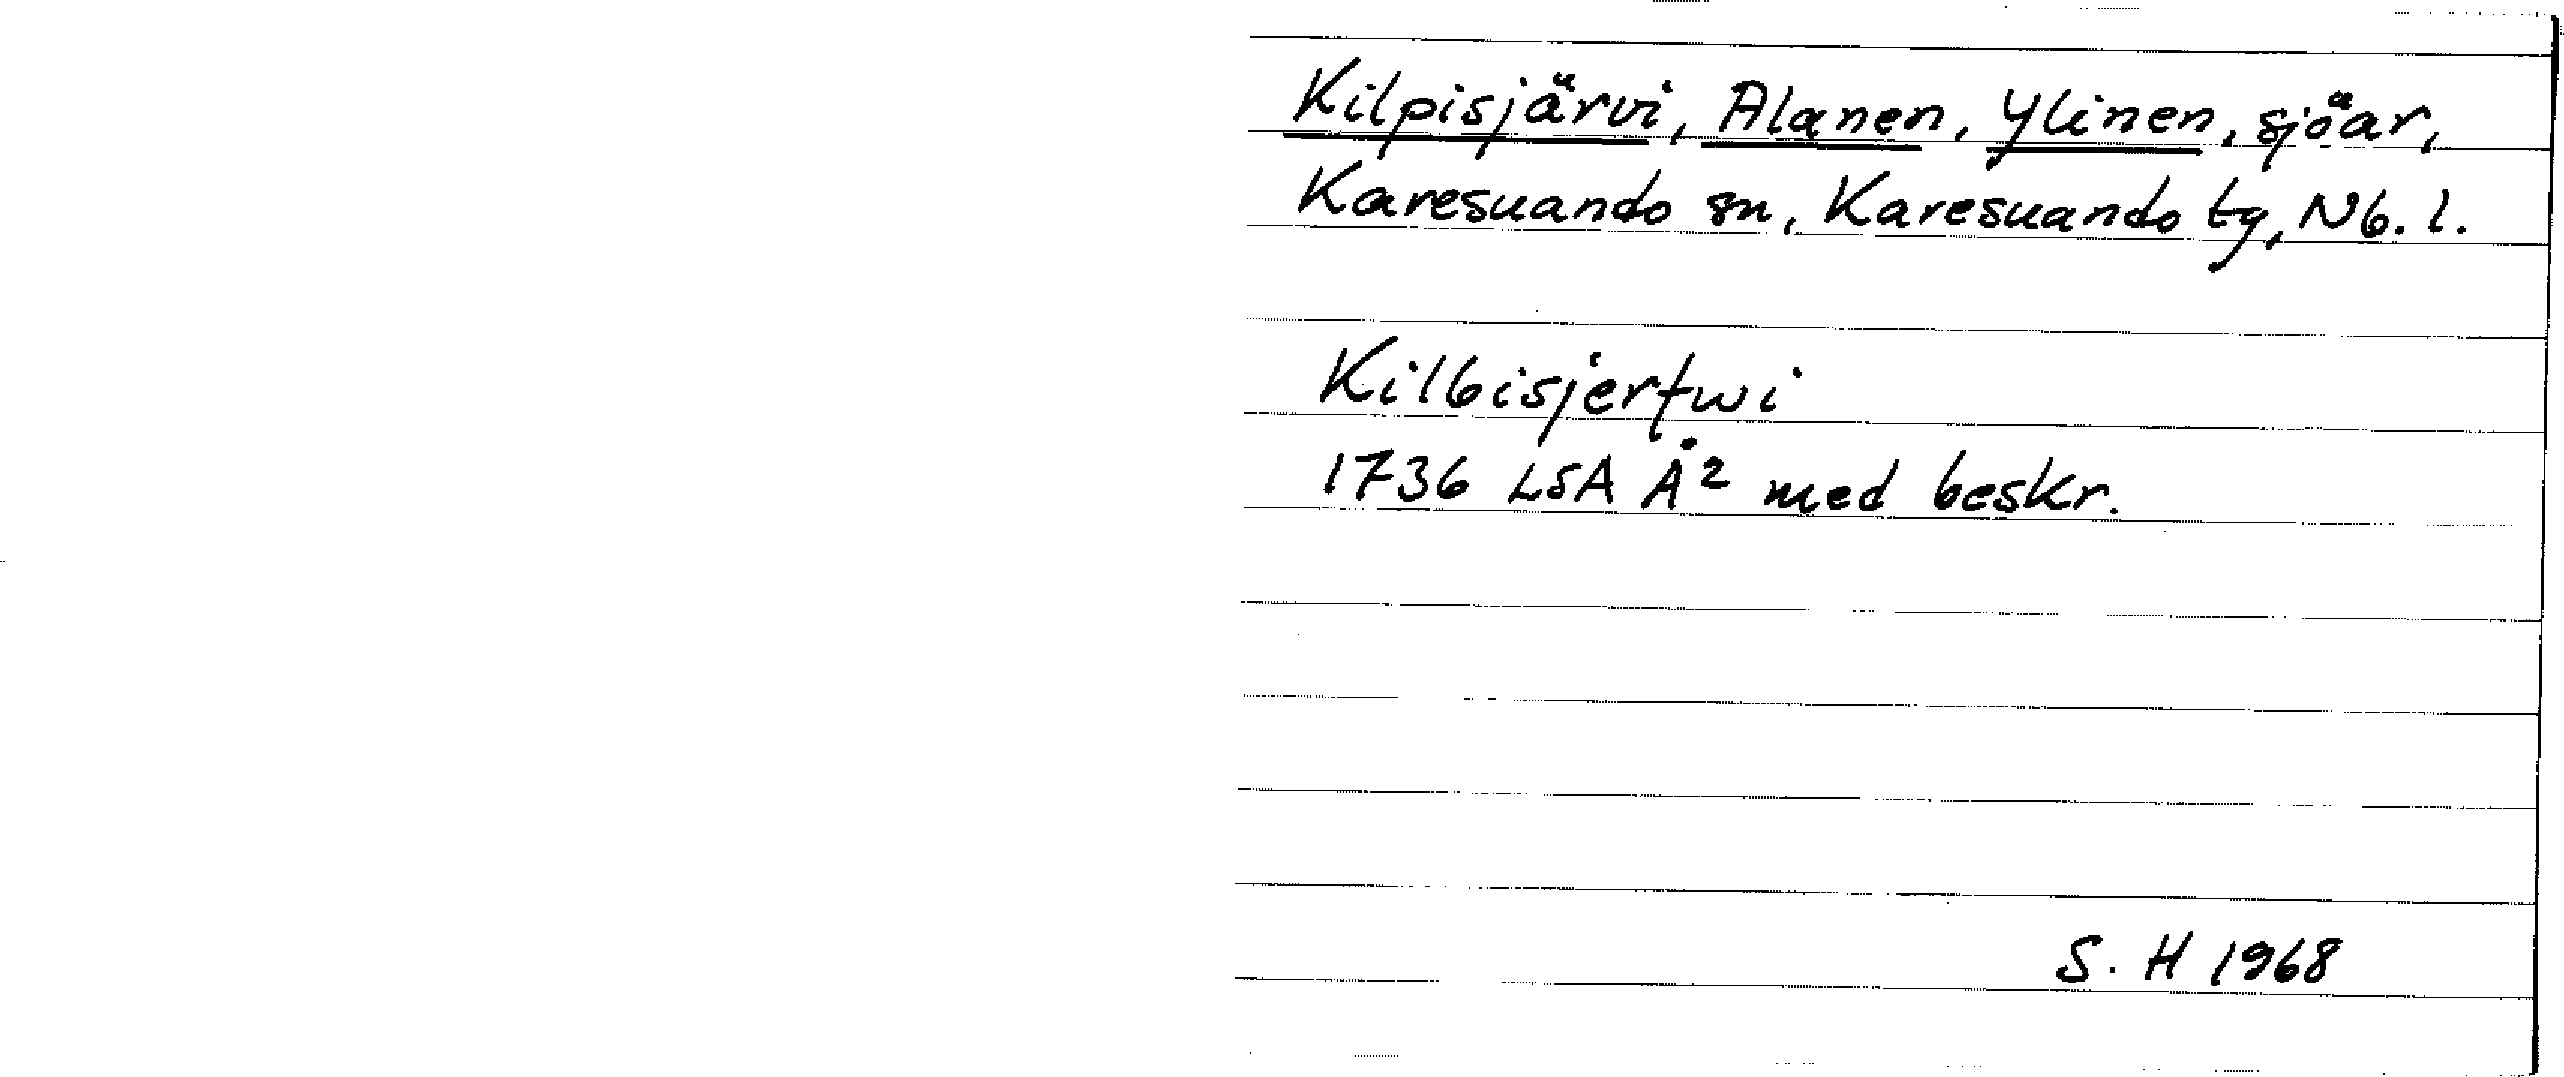 Kilpisjärvi, Alanen, Ylinen, sjöar,
Karesuando sn, Karesuando tg, Nb. l.
Kilbisjerfwi
1736 LSA Å2 med beskr.
S. H 1968